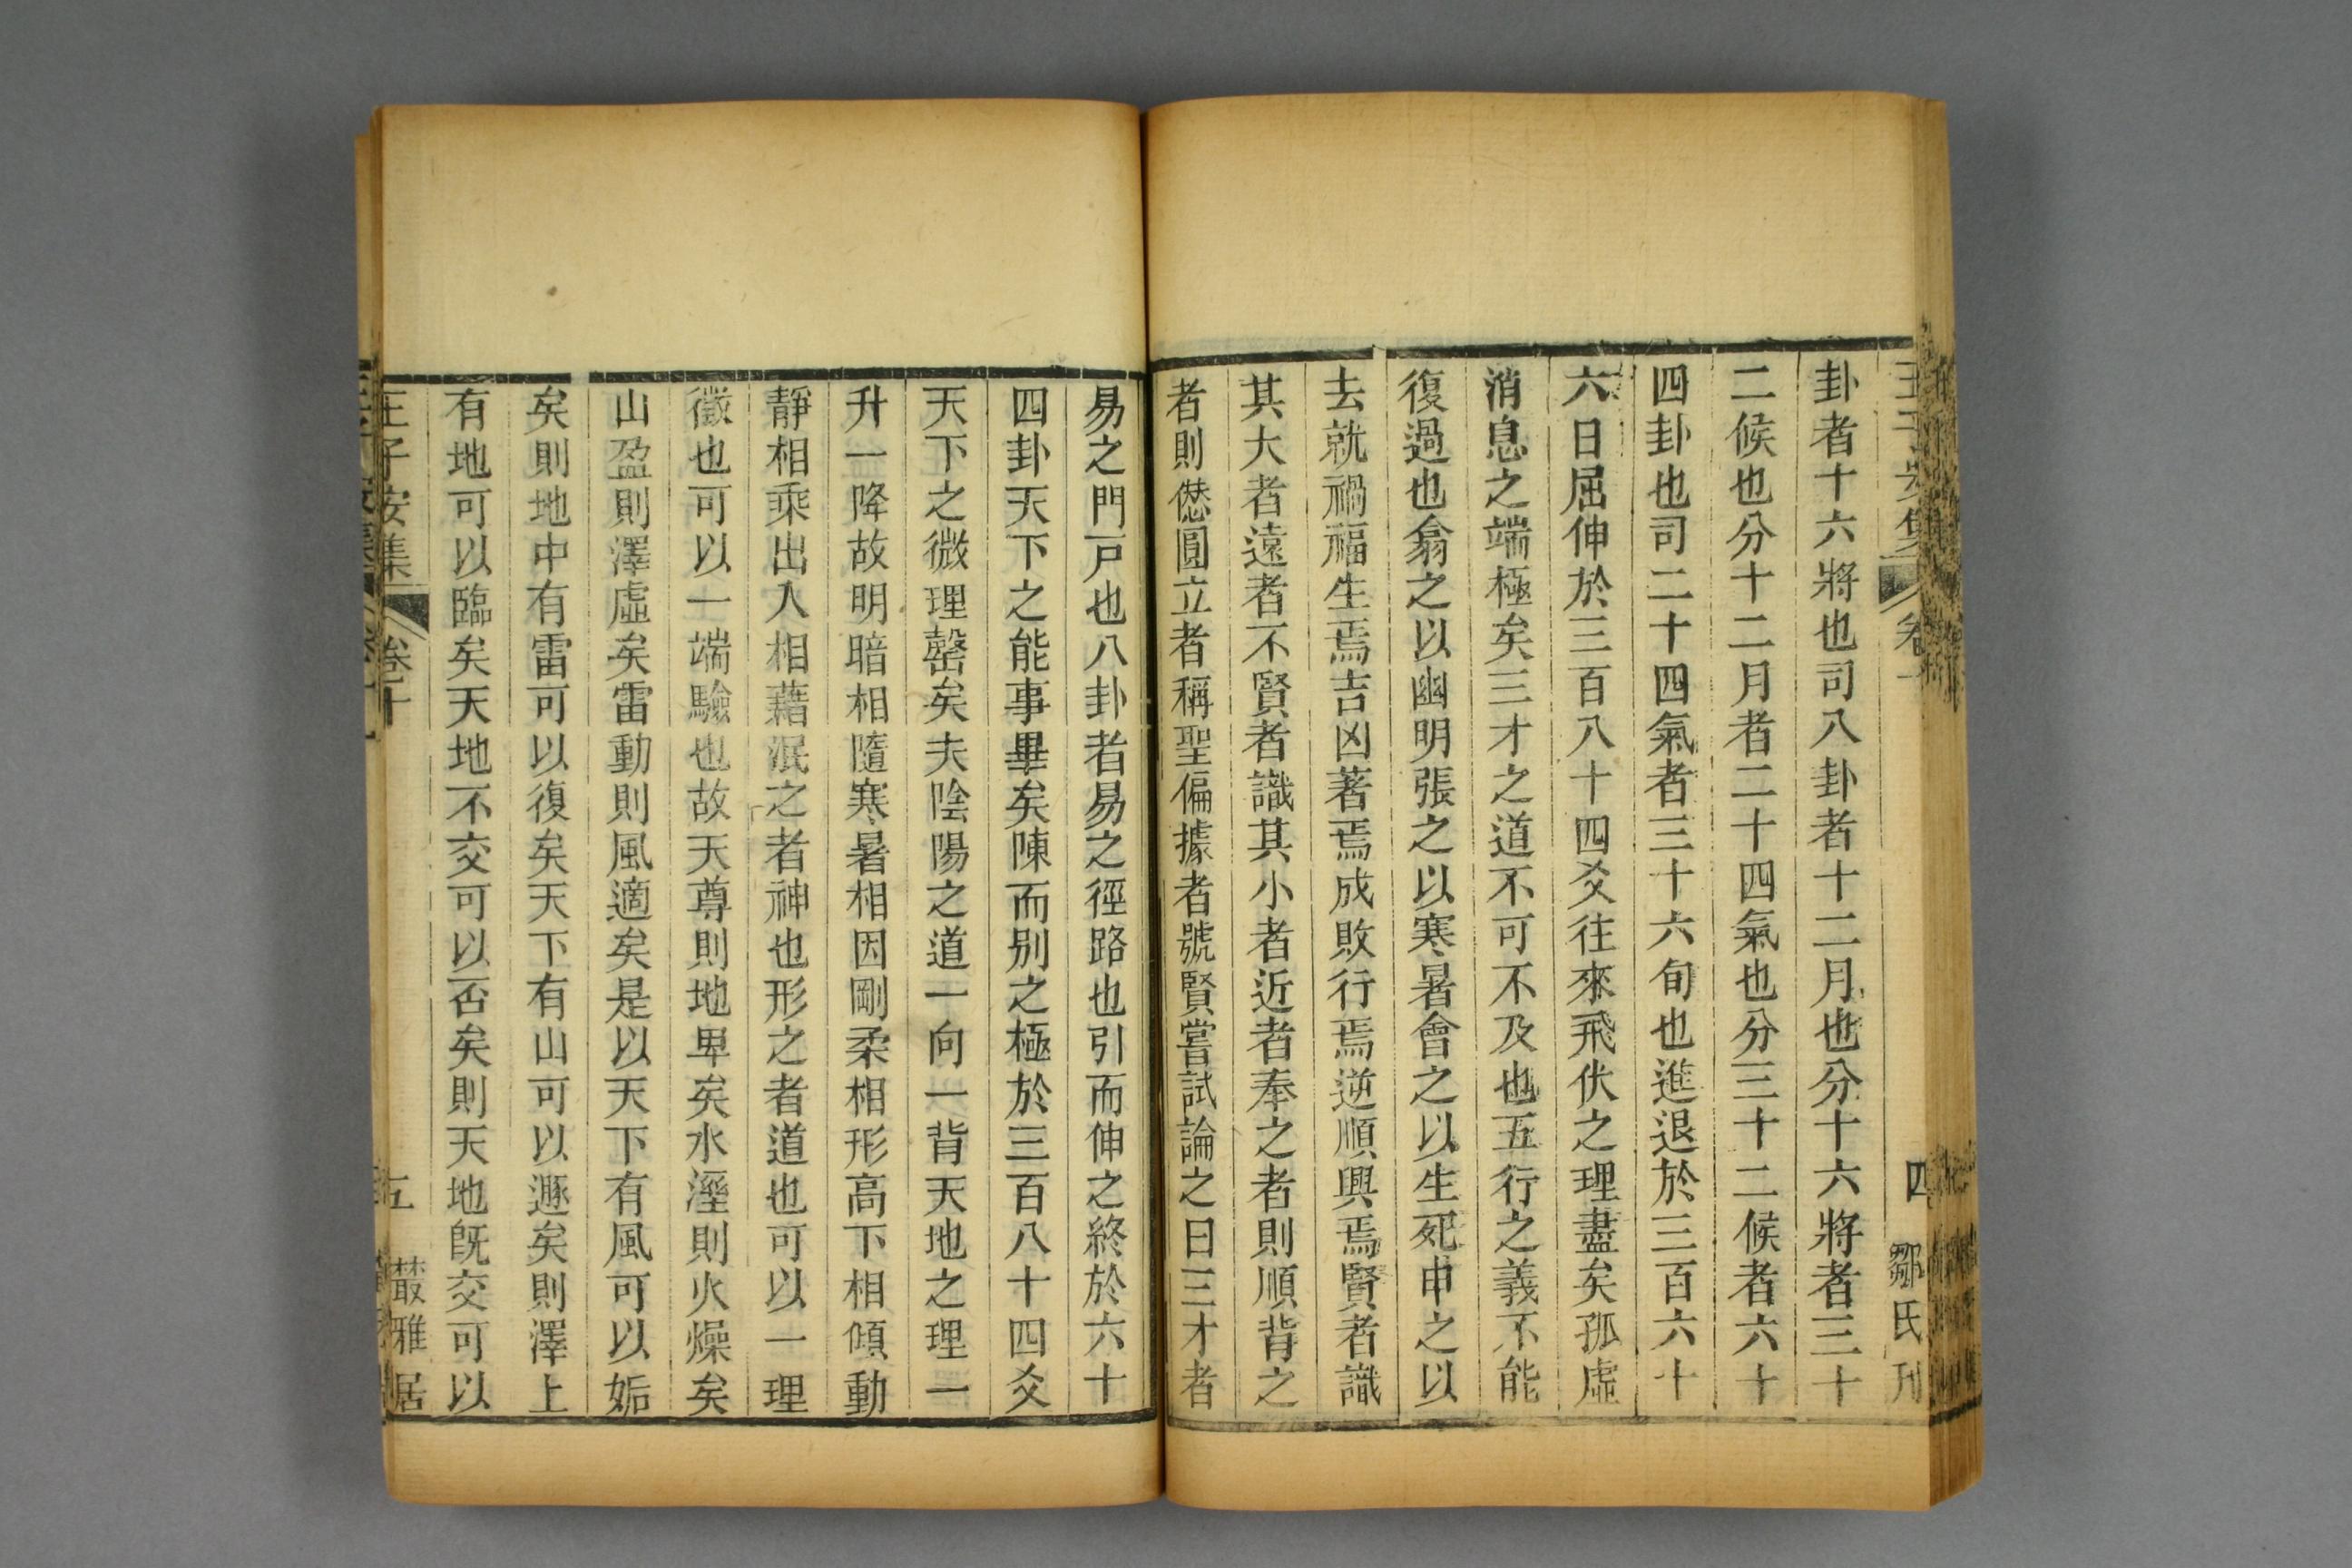 卦者十六將也司八卦者十二月也分十六將者三十
二候也分十二月者二十四氣也分三十二候者六十
四卦也司二十四氣者三十六旬也進退於三百六十
六日屈伸於三百八十四爻往來飛伏之理盡矣孤虛
消息之端極矣三才之道不可不及也五行之義不能
復過也翕之以幽明張之以寒暑會之以生死申之以
去就禍福生焉吉凶著焉成敗行焉逆順興焉賢者識
其大者遠者不賢者識其小者近者奉之者則順背之
者則僽圓立者稱聖偏據者號賢嘗試論之曰三才者
易之門戸也八卦者易之徑路也引而伸之終於六十
四卦天下之能事畢矣陳而别之極於三百八十四爻
天下之微理罄矣夫陰陽之道一向一背天地之理一
升一降故明暗相隨寒暑相因剛柔相形高下相傾動
靜相乘出入相藉泯之者神也形之者道也可以一理
徵也可以一端驗也故天尊則地卑矣水溼則火燥矣
山盈則澤虛矣雷動則風適矣是以天下有風可以姤
矣則地中有雷可以復矣天下有山可以遯矣則澤上
有地可以臨矣天地不交可以否矣則天地旣交可以
王子安集 卷十 五 叢雅居
四 鄒氏刊